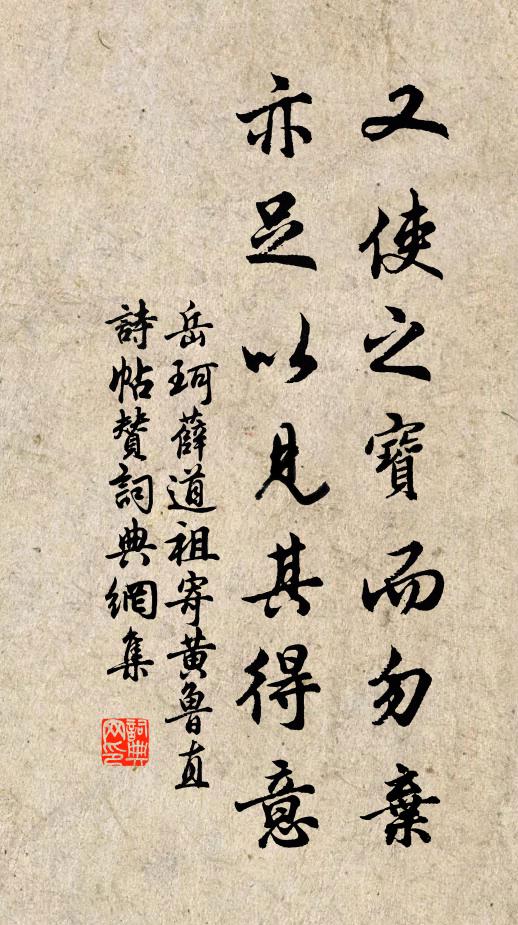 又使之寶而勿棄
亦足以見其得意
岳珂薛道祖寄黃魯直
詩帖贊詞典網集
詞典
网印